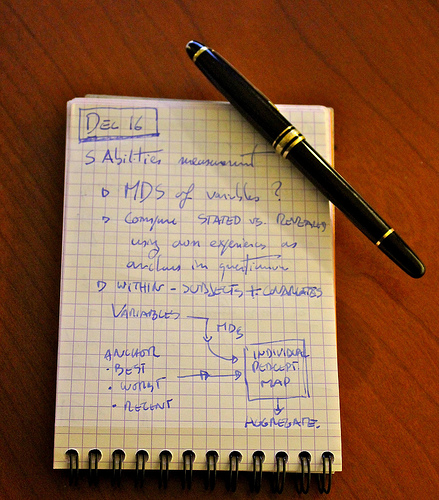 DEC 16
5 Abilities measurement
MDS of variables ?
Compare STATED vs. REVEALED
using own experiences as
anchors in questionnaire
WITHIN - SUBJECTS + COVARIATES
VARIABLES
MDS
ANCHOR
INDIVIDUAL
• BEST
PERCEPT.
• WORST
MAP
• RECENT
AGGREGATE.